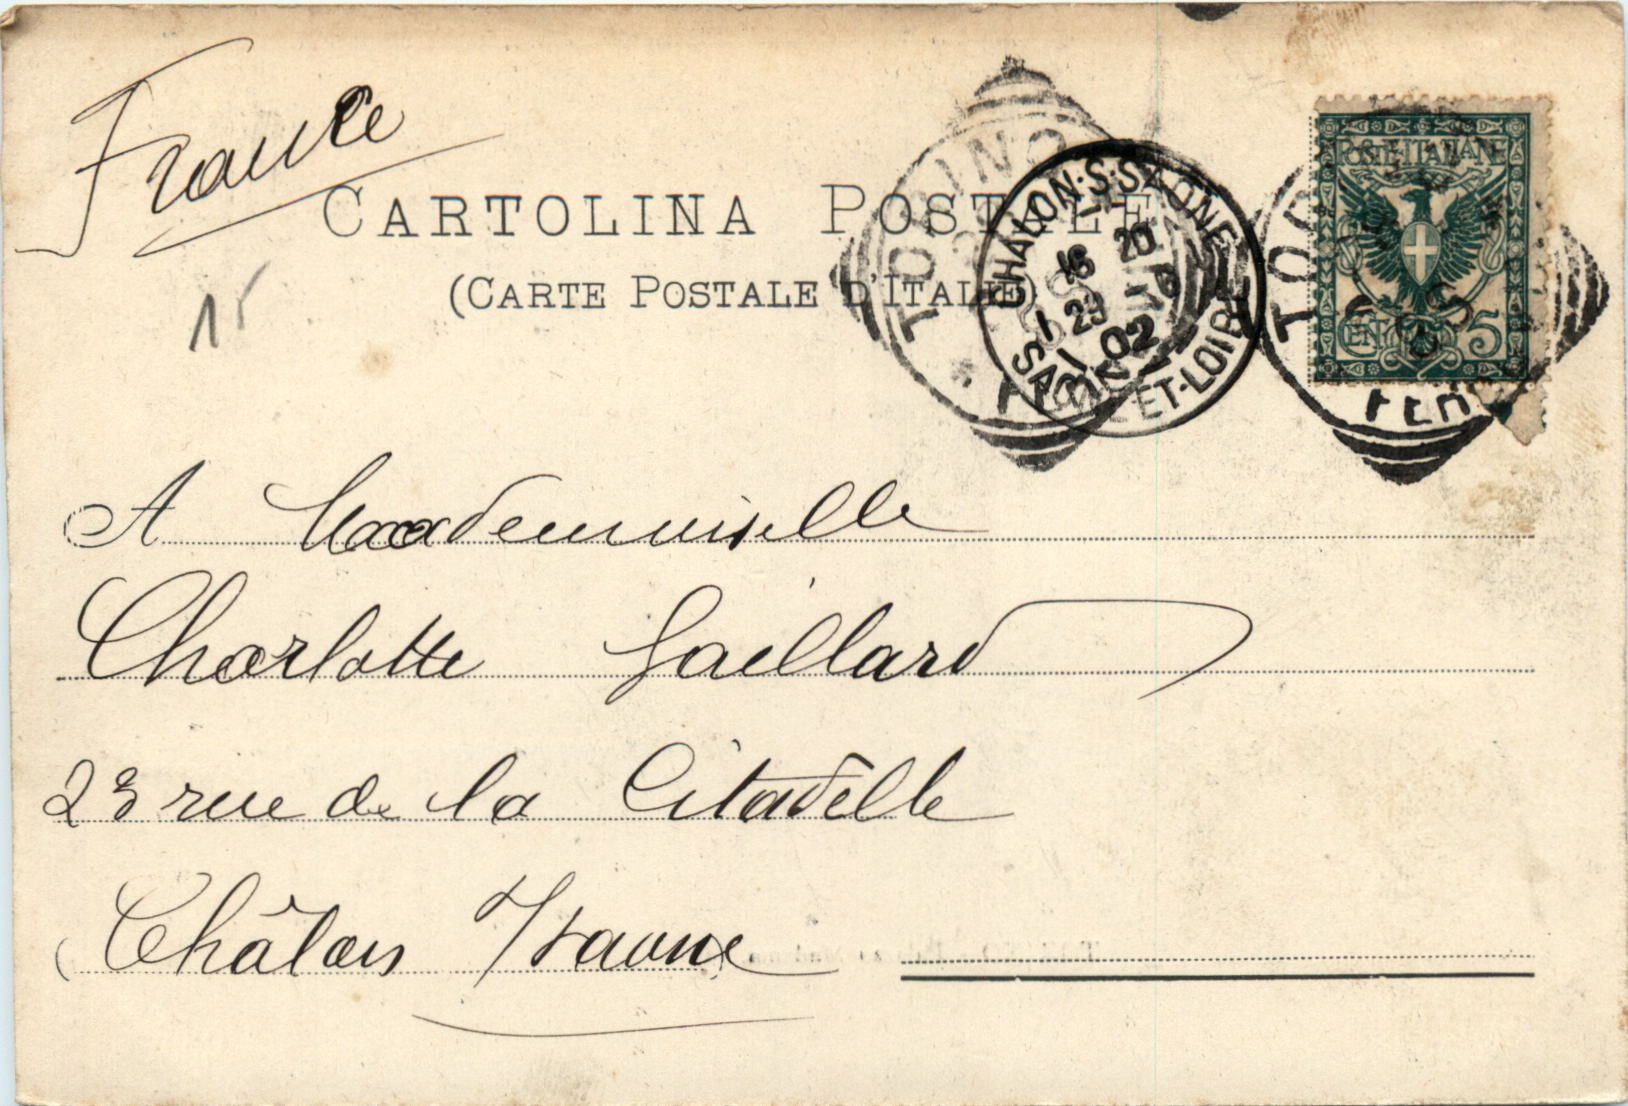 France
CARTOLINA POSTALE
(CARTE POSTALE D'ITALIE)
15
TORINO
CHALON-S-SAONE
16 20
1 29
1 02
SAONE-ET-LOIRE
TORINO
POSTE·ITALIANE
CENT 5
A Mademoiselle
Charlotte Gaillard
23 rue de la Citadelle
Châlon s/Saone